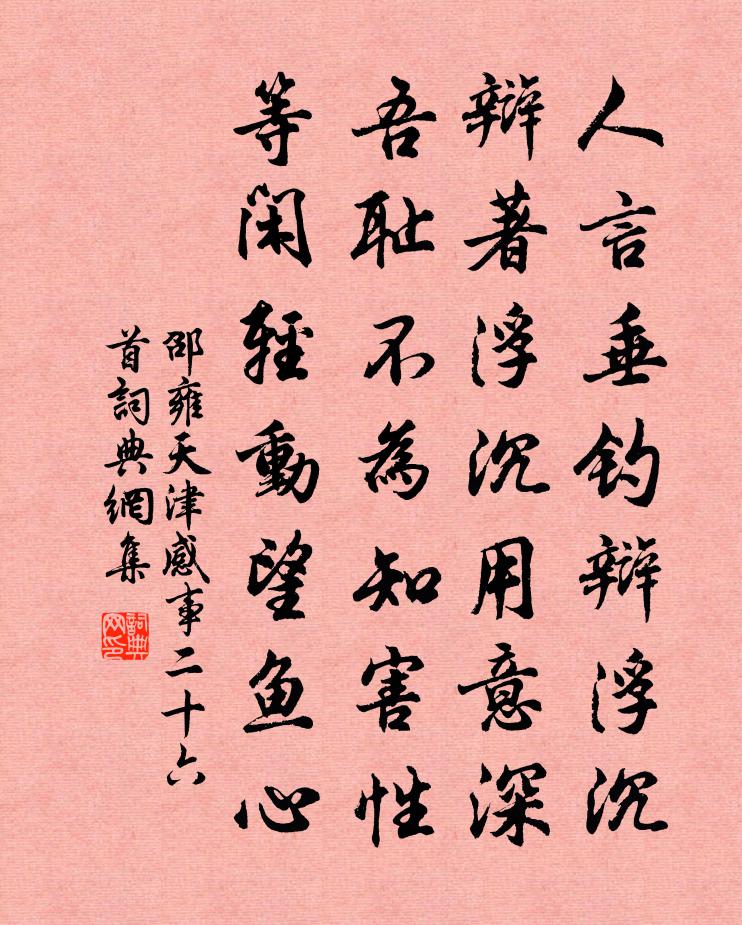 人言垂钓辩浮沉
辩著浮沉用意深
吾耻不為知害性
等闲輕動望鱼心
邵雍天津感事二十六
首詞典網集
詞典
网印